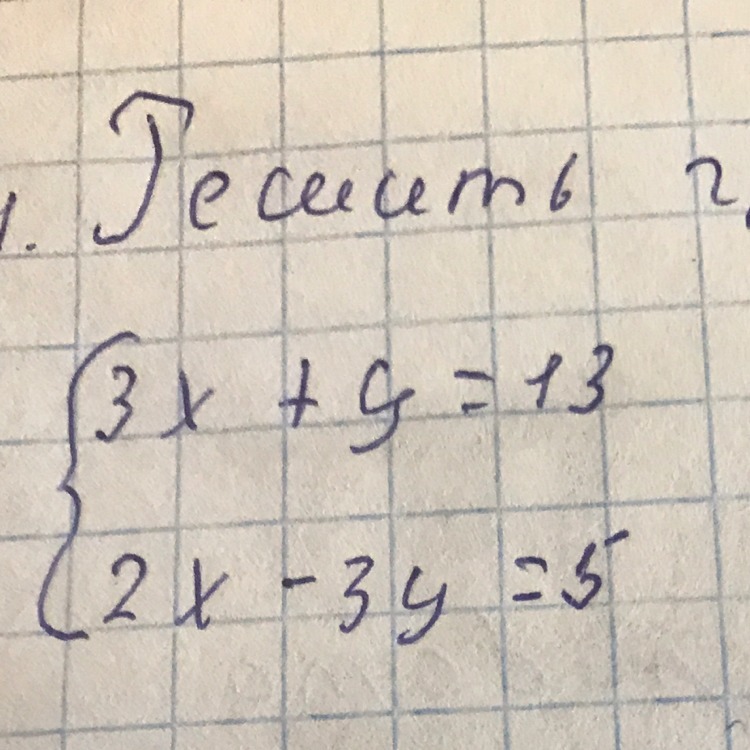 1. Решить
3x + y = 13
2x - 3y = 5